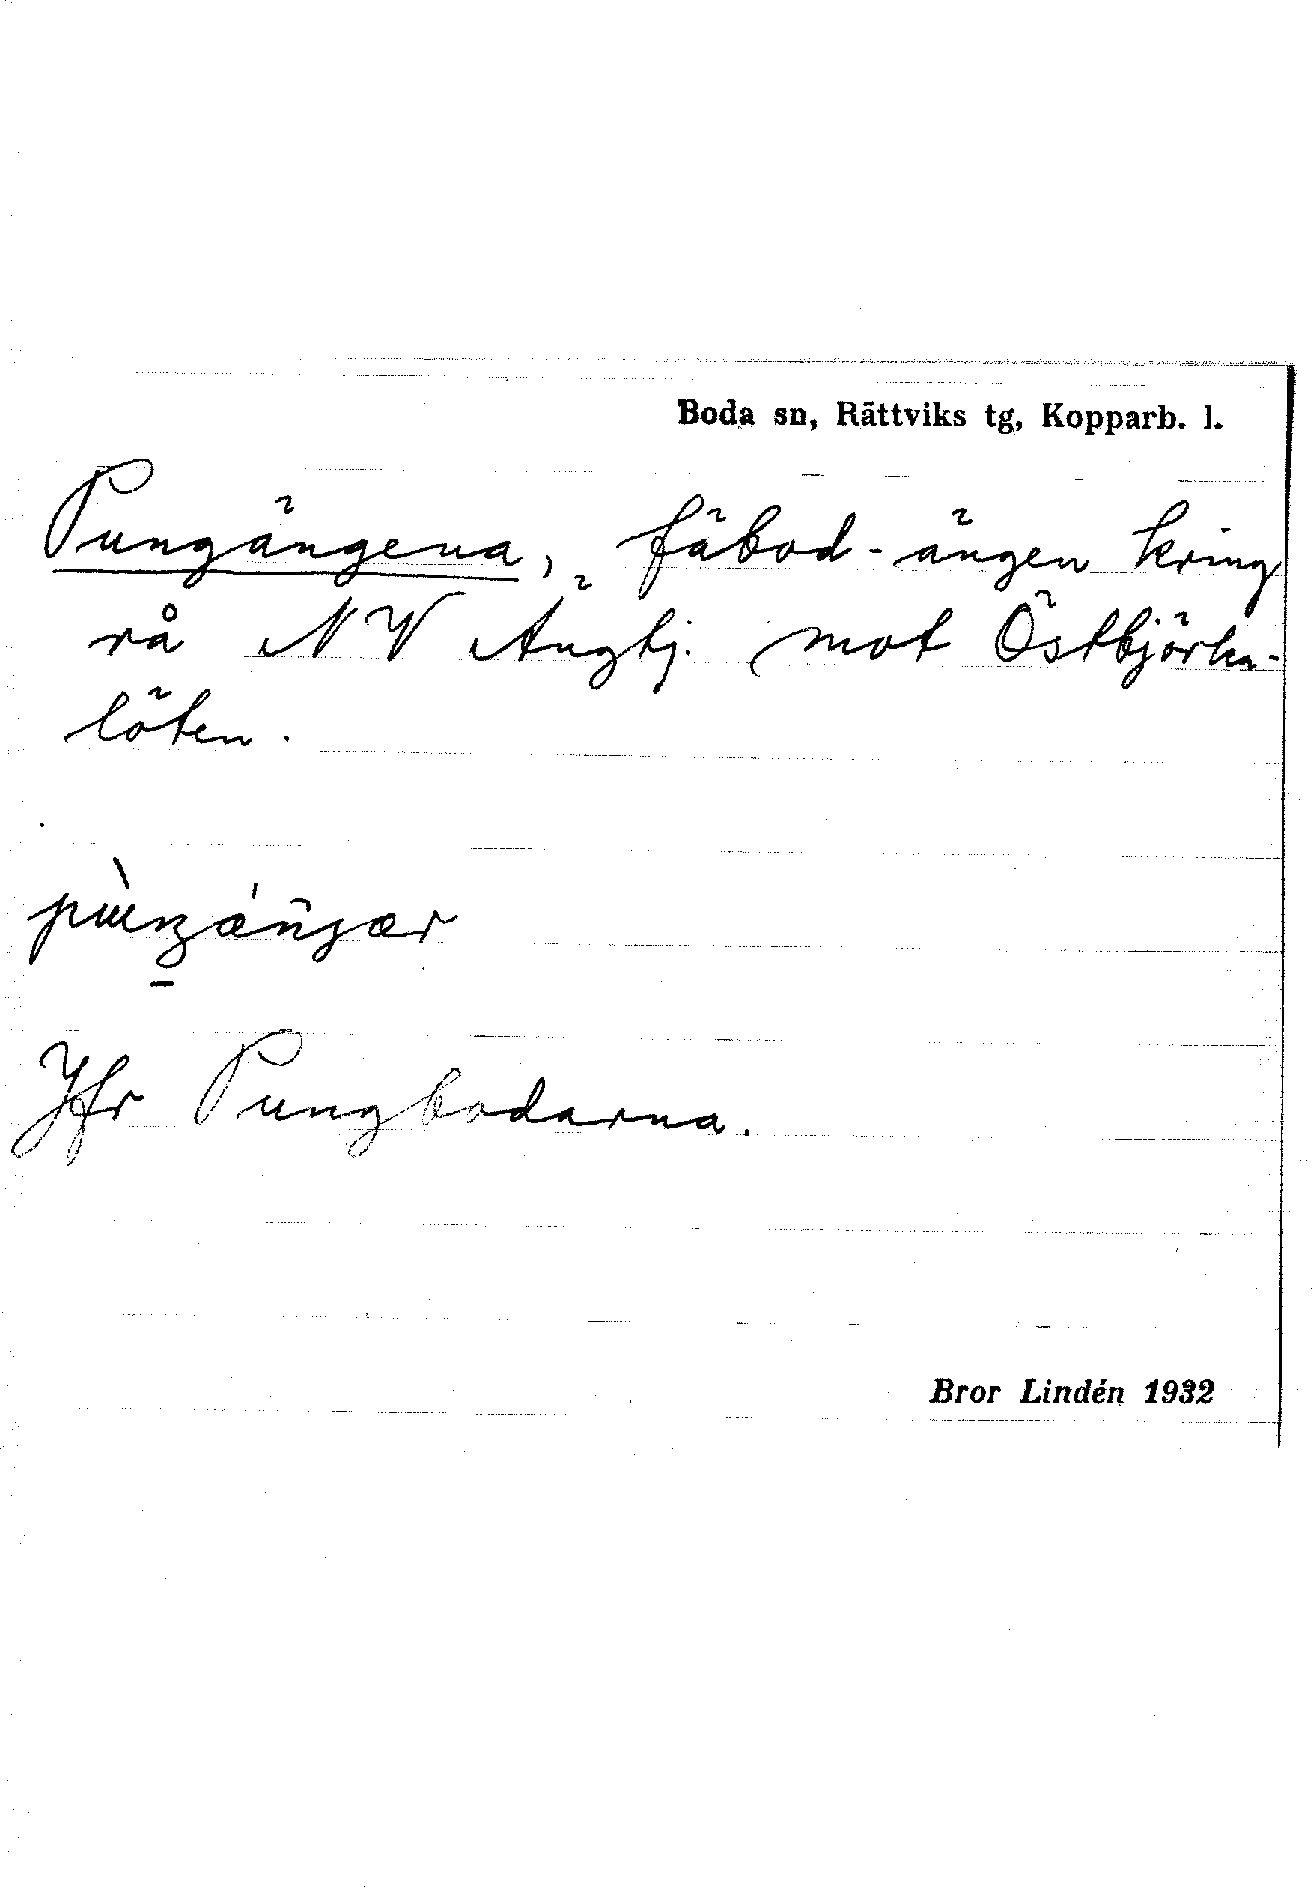 Boda sn, Rättviks tg, Kopparb. l.
Pungängena, fäbod-ängen kring
rå NV Ängtj. mot Östbjörka-
löten.
Jfr Pungbodarna.
Bror Lindén 1932